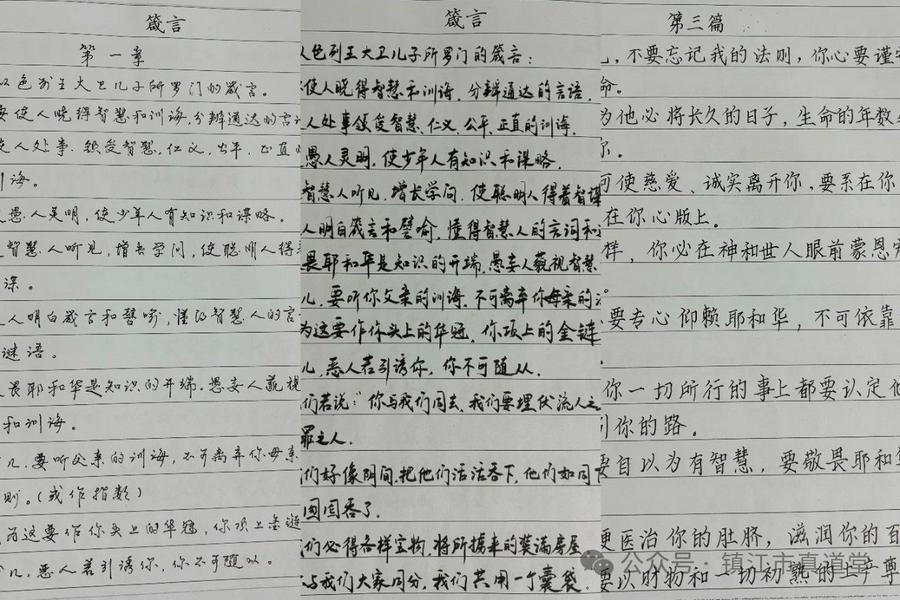 箴言
第一章
以色列王大卫儿子所罗门的箴言。
要使人晓得智慧和训诲,分辨通达的言语
使人处事,领受智慧,仁义,公平,正直的
训诲。
愚人灵明,使少年人有知识和谋略。
智慧人听见,增长学问,使聪明人得着
谋。
人明白箴言和譬喻,懂得智慧人的言
谜语。
畏耶和华是知识的开端。愚妄人藐视
和训诲。
儿,要听你父亲的训诲,不可离弃你母亲
则。(或作指教)
因为这要作你头上的华冠,你项上金链
儿,恶人若引诱你,你不可随从。
箴言
以色列王大卫儿子所罗门的箴言:
使人晓得智慧和训诲,分辨通达的言语,
人处事领受智慧、仁义、公平、正直的训诲,
愚人灵明,使少年人有知识和谋略,
智慧人听见,增长学问,使聪明人得着智谋
人明白箴言和譬喻,懂得智慧人的言词和
畏耶和华是知识的开端,愚妄人藐视智慧
儿,要听你父亲的训诲,不可离弃你母亲的法
为这要作你头上的华冠,你项上的金链
儿,恶人若引诱你,你不可随从。
们若说:“你与我们同去,我们要埋伏流人之
罪之人。
们好像阴间,把他们活活吞下,他们如同下
囫囵吞了。
们必得各样宝物,将所掳来的装满房屋
与我们大家同分,我们共用一个囊袋。
第三篇
,不要忘记我的法则,你心要谨守
命。
为他必将长久的日子,生命的年数
你。
可使慈爱、诚实离开你,要系在你
在你心版上。
样,你必在神和世人眼前蒙恩宠
要专心仰赖耶和华,不可依靠
你一切所行的事上都要认定他
引你的路。
要自以为有智慧,要敬畏耶和华
便医治你的肚脐,滋润你的百
要以财物和一切初熟的土产尊
公众号:镇江市真道堂